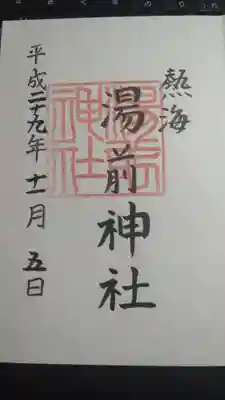 熱海
湯前神社
平成二十九年十一月五日
湯前神社